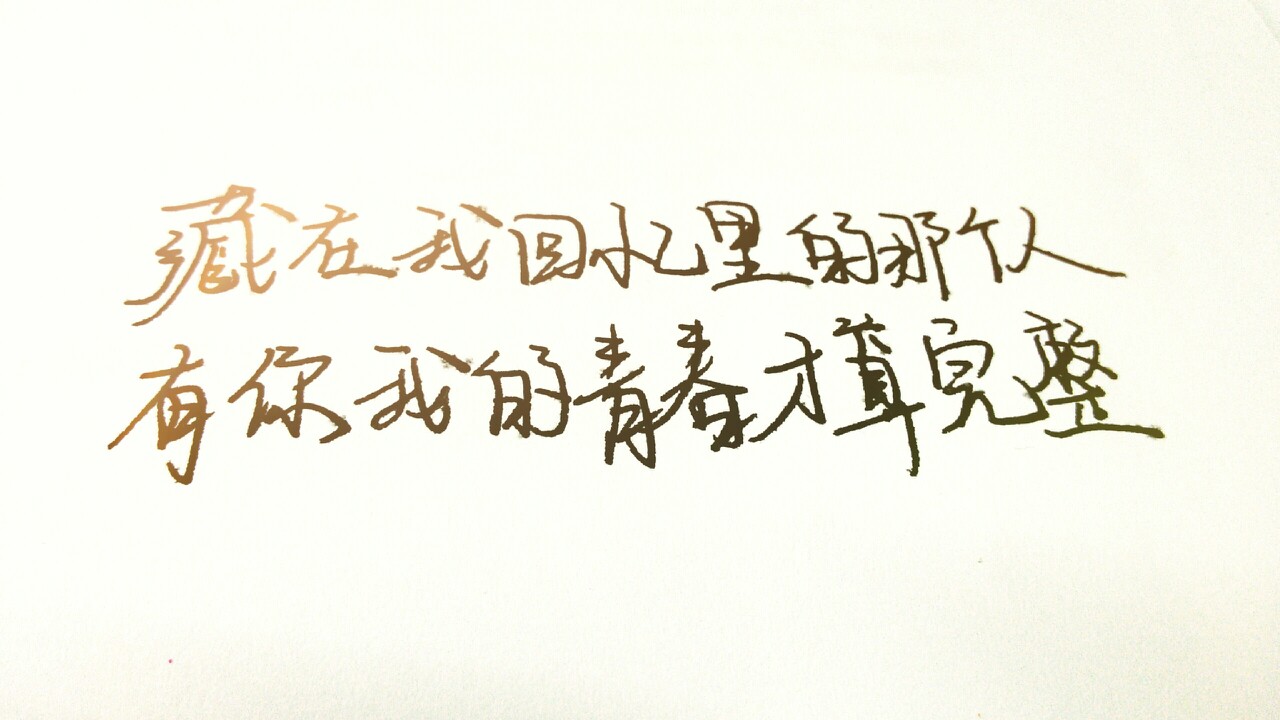 藏在我回忆里的那个人
有你我的青春才算完整